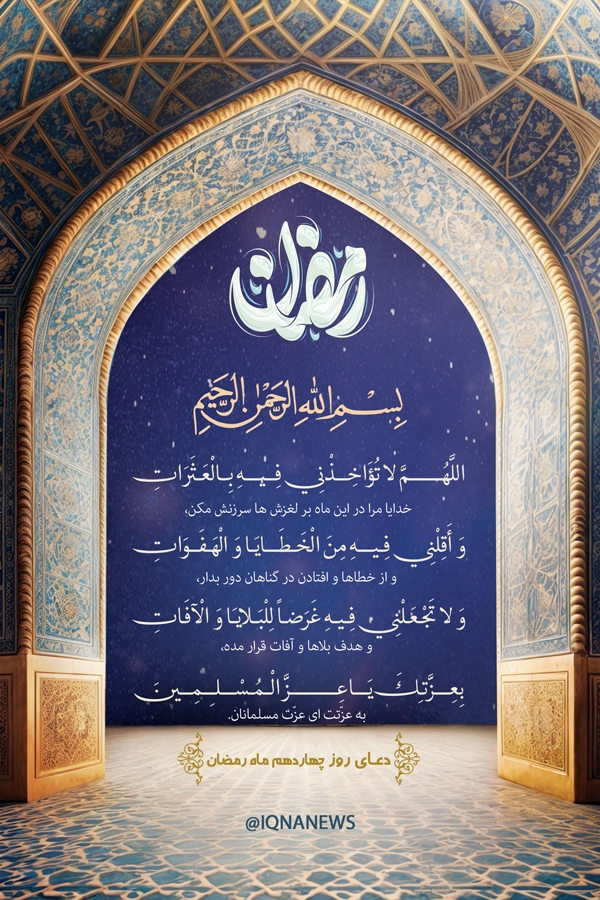 رمضان
بِسْمِ اللهِ الرَّحْمٰنِ الرَّحِیمِ
اللَّهُمَّ لا تُؤَاخِذْنِي فِيهِ بِالْعَثَرَاتِ
خدایا مرا در این ماه بر لغزش ها سرزنش مکن،
وَ أَقِلْنِي فِيهِ مِنَ الْخَطَايَا وَ الْهَفَوَاتِ
و از خطاها و افتادن در گناهان دور بدار،
وَ لا تَجْعَلْنِي فِيهِ غَرَضاً لِلْبَلايَا وَ الْآفَاتِ
و هدف بلاها و آفات قرار مده،
بِعِزَّتِكَ يَا عِزَّ الْمُسْلِمِينَ
به عزّتت ای عزّت مسلمانان.
دعای روز چهاردهم ماه رمضان
@IQNANEWS